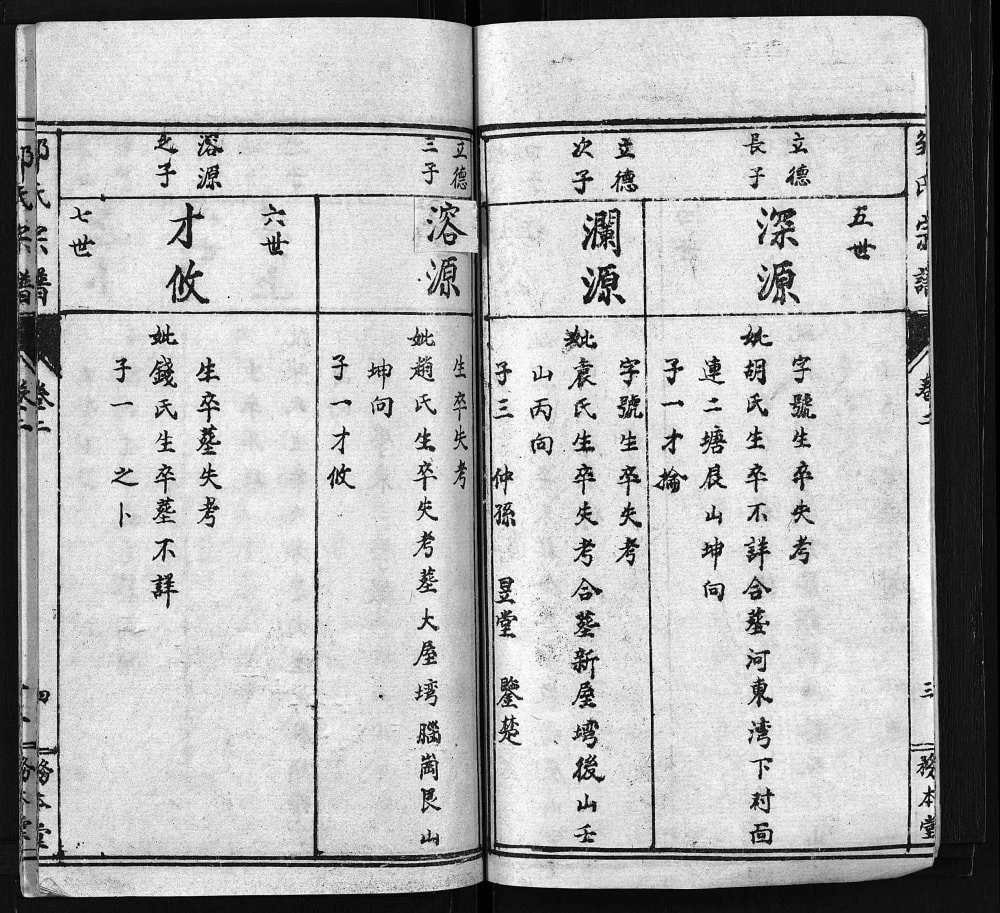 五世
立德
長子
深源
字號生卒失考
妣胡氏生卒不詳合墓河東湾下村面
連二塘艮山坤向
子一才掄
立德
次子
瀾源
字號生卒失考
妣袁氏生卒失考合墓新屋塆後山壬
山丙向
子三 仲孫 昱堂 鑒楚
卷二
三
務本堂
立德
三子
溶源
生卒失考
妣趙氏生卒失考墓大屋塆腦崗艮山
坤向
子一才攸
六世
溶源
之子
才攸
生卒墓失考
妣錢氏生卒墓不詳
子一 之卜
七世
氏宗譜
卷二
四
務本堂